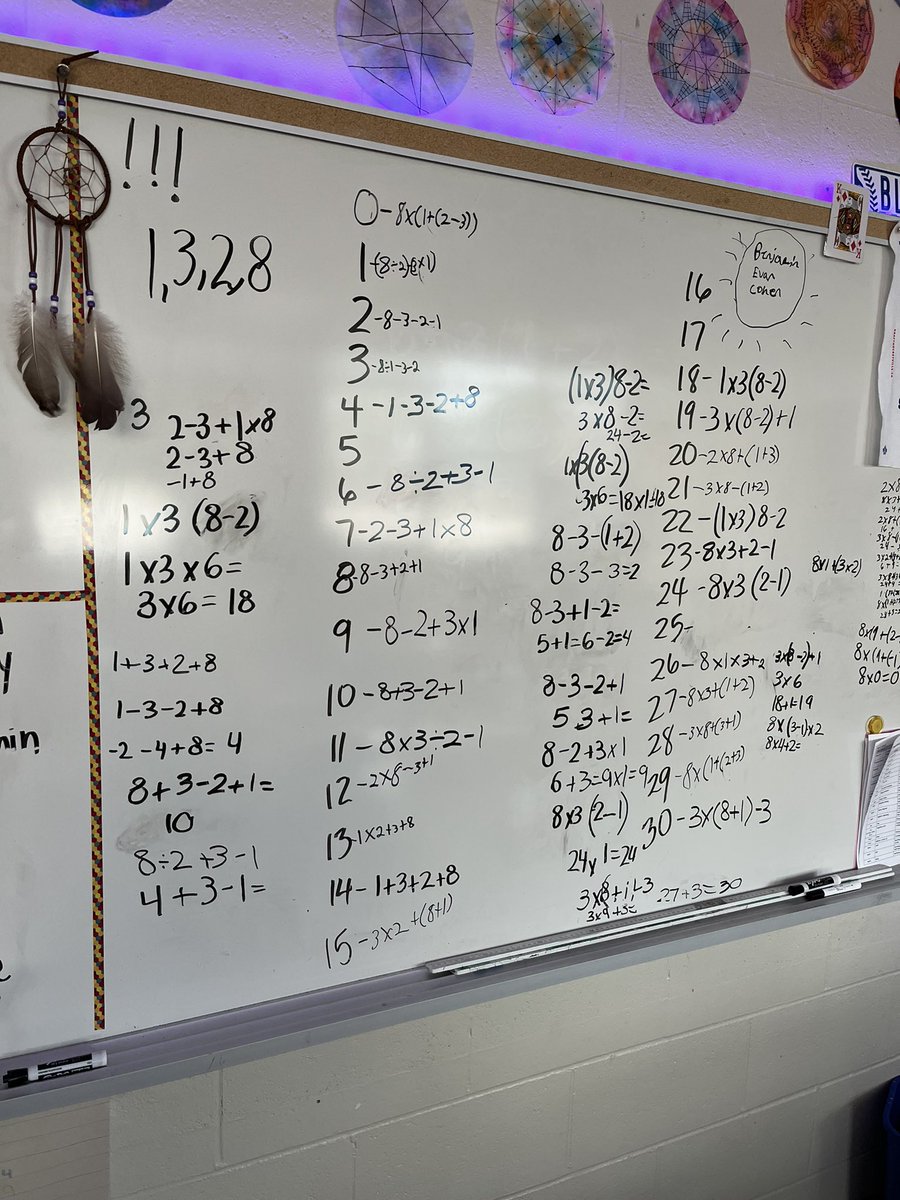 !!!
1,3,2,8
3
2-3+1x8
2-3+8
-1+8
1x3(8-2)
1x3x6=
3x6=18
1+3+2+8
1-3-2+8
-2-4+8=4
8+3-2+1=
10
8÷2+3-1
4+3-1=
0-8x(1+(2-3))
2-8-3-2-1
3-8÷1-3-2
4-1-3-2+8
5
6-8÷2+3-1
7-2-3+1x8
8-8-3+2+1
9-8-2+3x1
10-8+3-2+1
11-8x3÷2-1
12-2x8-3+1
13-1x2+3+8
14-1+3+2+8
15-3x2+(8+1)
(1x3)8-2=
3x8-2=
24-2=
1x3(8-2)
8-3-(1+2)
8-3-3=2
8-3+1-2=
5+1=6-2=4
8-3-2+1
5 3+1=
8-2+3x1
6+3=9x1=9
8x3(2-1)
24x1=24
3x9+3=
27+3=30
16
17
18-1x3(8-2)
19-3x(8-2)+1
20-2x8+(1+3)
21-3x8-(1+2)
22-(1x3)8-2
23-8x3+2-1
24-8x3(2-1)
25-
26-8x1x3+2
27-8x3+(1+2)
28-3x8+(3+1)
29-8x(1+(2+3)
30-3x(8+1)-3
Benjamin
Evan
Cohen
8x1+(3x2)
3x6
18+1=19
8x(3-1)x2
8x4+2=
8x0=0
K
BL